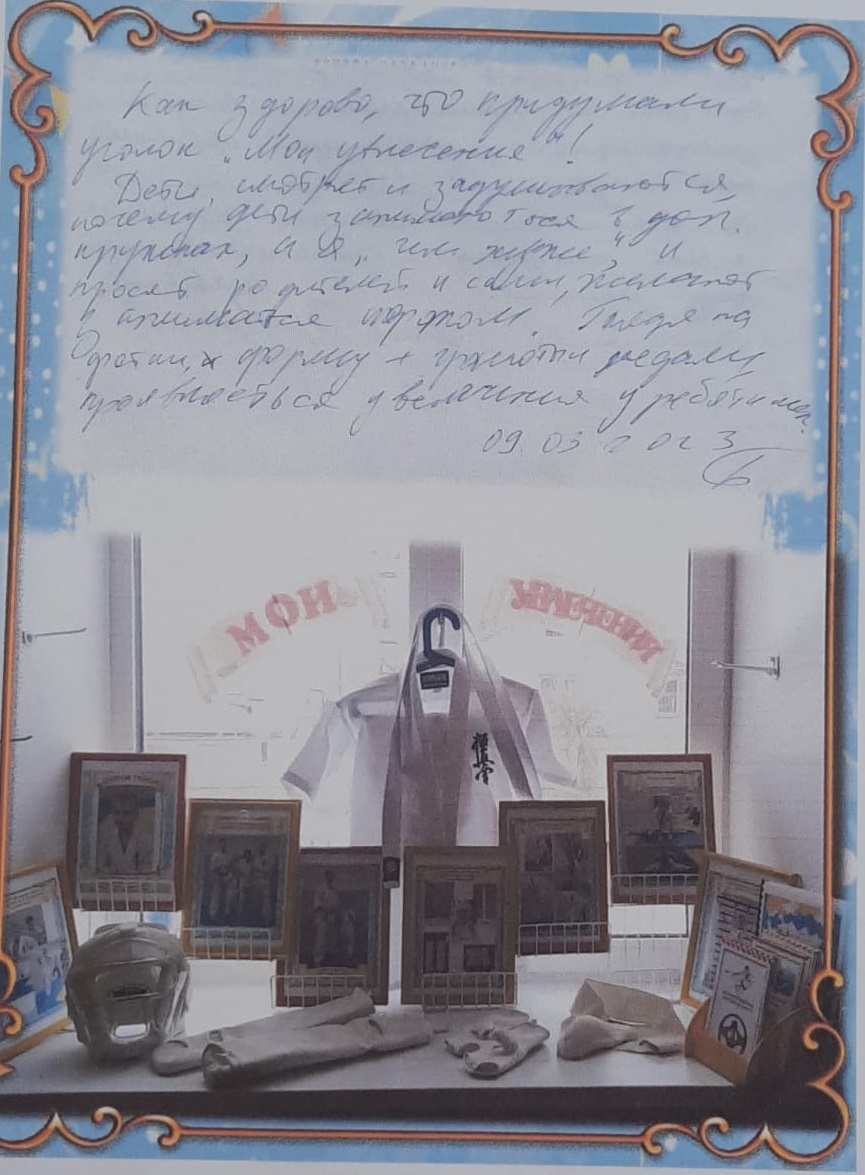 Как здорово, что придумали
уголок „Мои увлечение“!
Дети, смотрят и задумываются,
почему дети занимаются в доп.
кружках, а я „чем хуже“, и
просят родителей и сами, желают
заниматся спортом. Глядя на
фотки, форму + грамоты медали,
проявляеться увлечения у ребятишек.
09.03.2023
МОИ
УВЛЕЧЕНИЯ